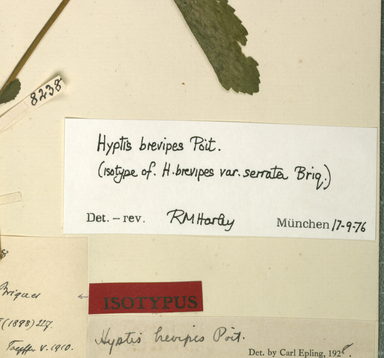 8238
Hyptis brevipes Poit.
(isotype of. H. brevipes var. serrata Briq.)
Det. – rev. RMHarley München 17-9-76
Briquet
(1898) 227.
ISOTYPUS
V. 1910.
Hyptis brevipes Poit.
Det. by Carl Epling, 192